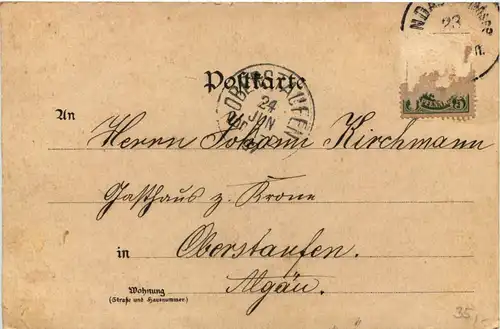 23
5
Postkarte
OBERSTAUFEN
24
JUN
An
Herrn Johann Kirchmann
Gasthaus z. Krone
in
Oberstaufen.
Algäu.
Wohnung
(Straße und Hausnummer)
35,-